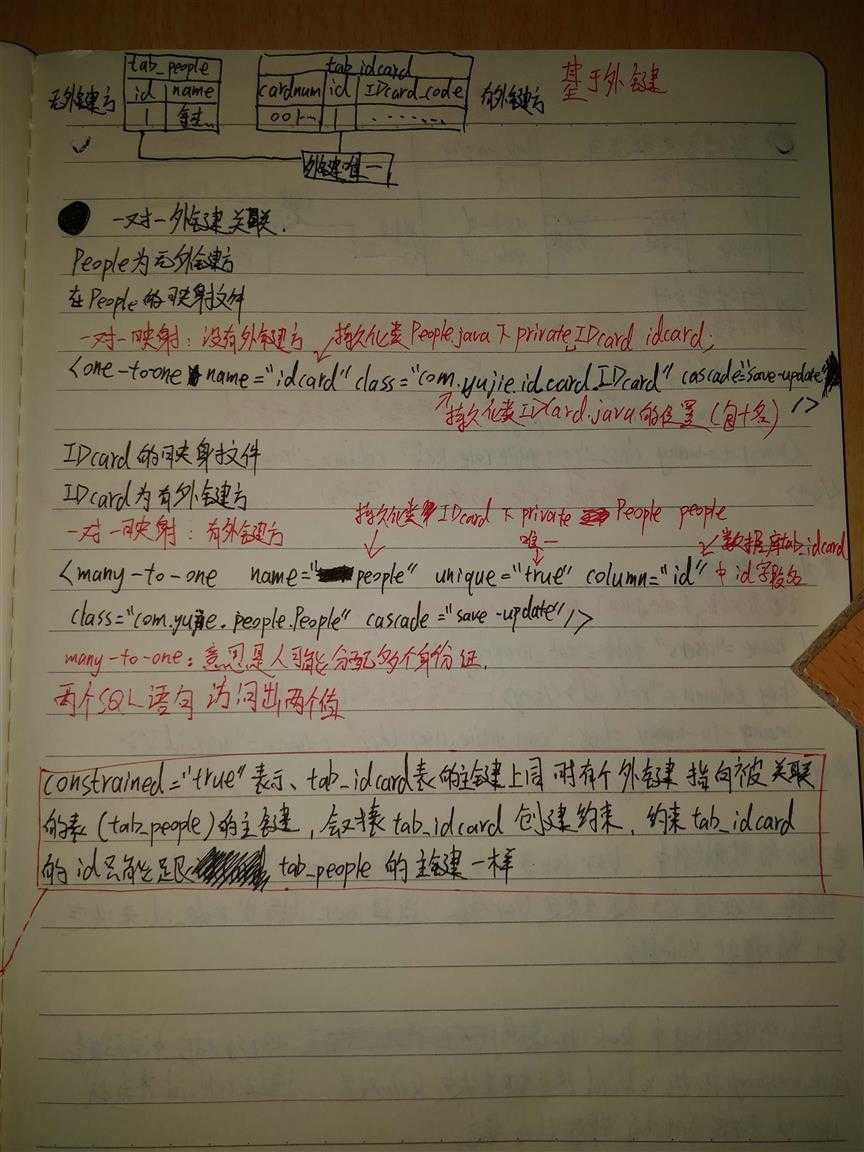 tab_people
tab_idcard
基于外键
无外键方
id name
cardnum id IDcard_code
有外键方
1
001... 1 .......
外键唯一
一对一外键关联.
People为无外键方
在People的映射文件
一对一映射：没有外键方 持久化类People.java下private IDcard idcard;
<one-to-one name="idcard" class="com.yujie.idcard.IDcard" cascade="save-update"
持久化类IDcard.java的位置(包+名) />
IDcard的映射文件
IDcard为有外键方
一对一映射：有外键方 持久化类IDcard下private People people
唯一 数据库tab_idcard
<many-to-one name="people" unique="true" column="id" 中id字段名
class="com.yujie.people.People" cascade="save-update"/>
many-to-one：意思是人可能分配多个身份证.
两个SQL语句 访问出两个值
constrained="true"表示、tab_idcard表的主键上同时有个外键指向被关联
的表(tab_people)的主键，会对表tab_idcard创建约束，约束tab_idcard
的id只能是跟tab_people的主键一样